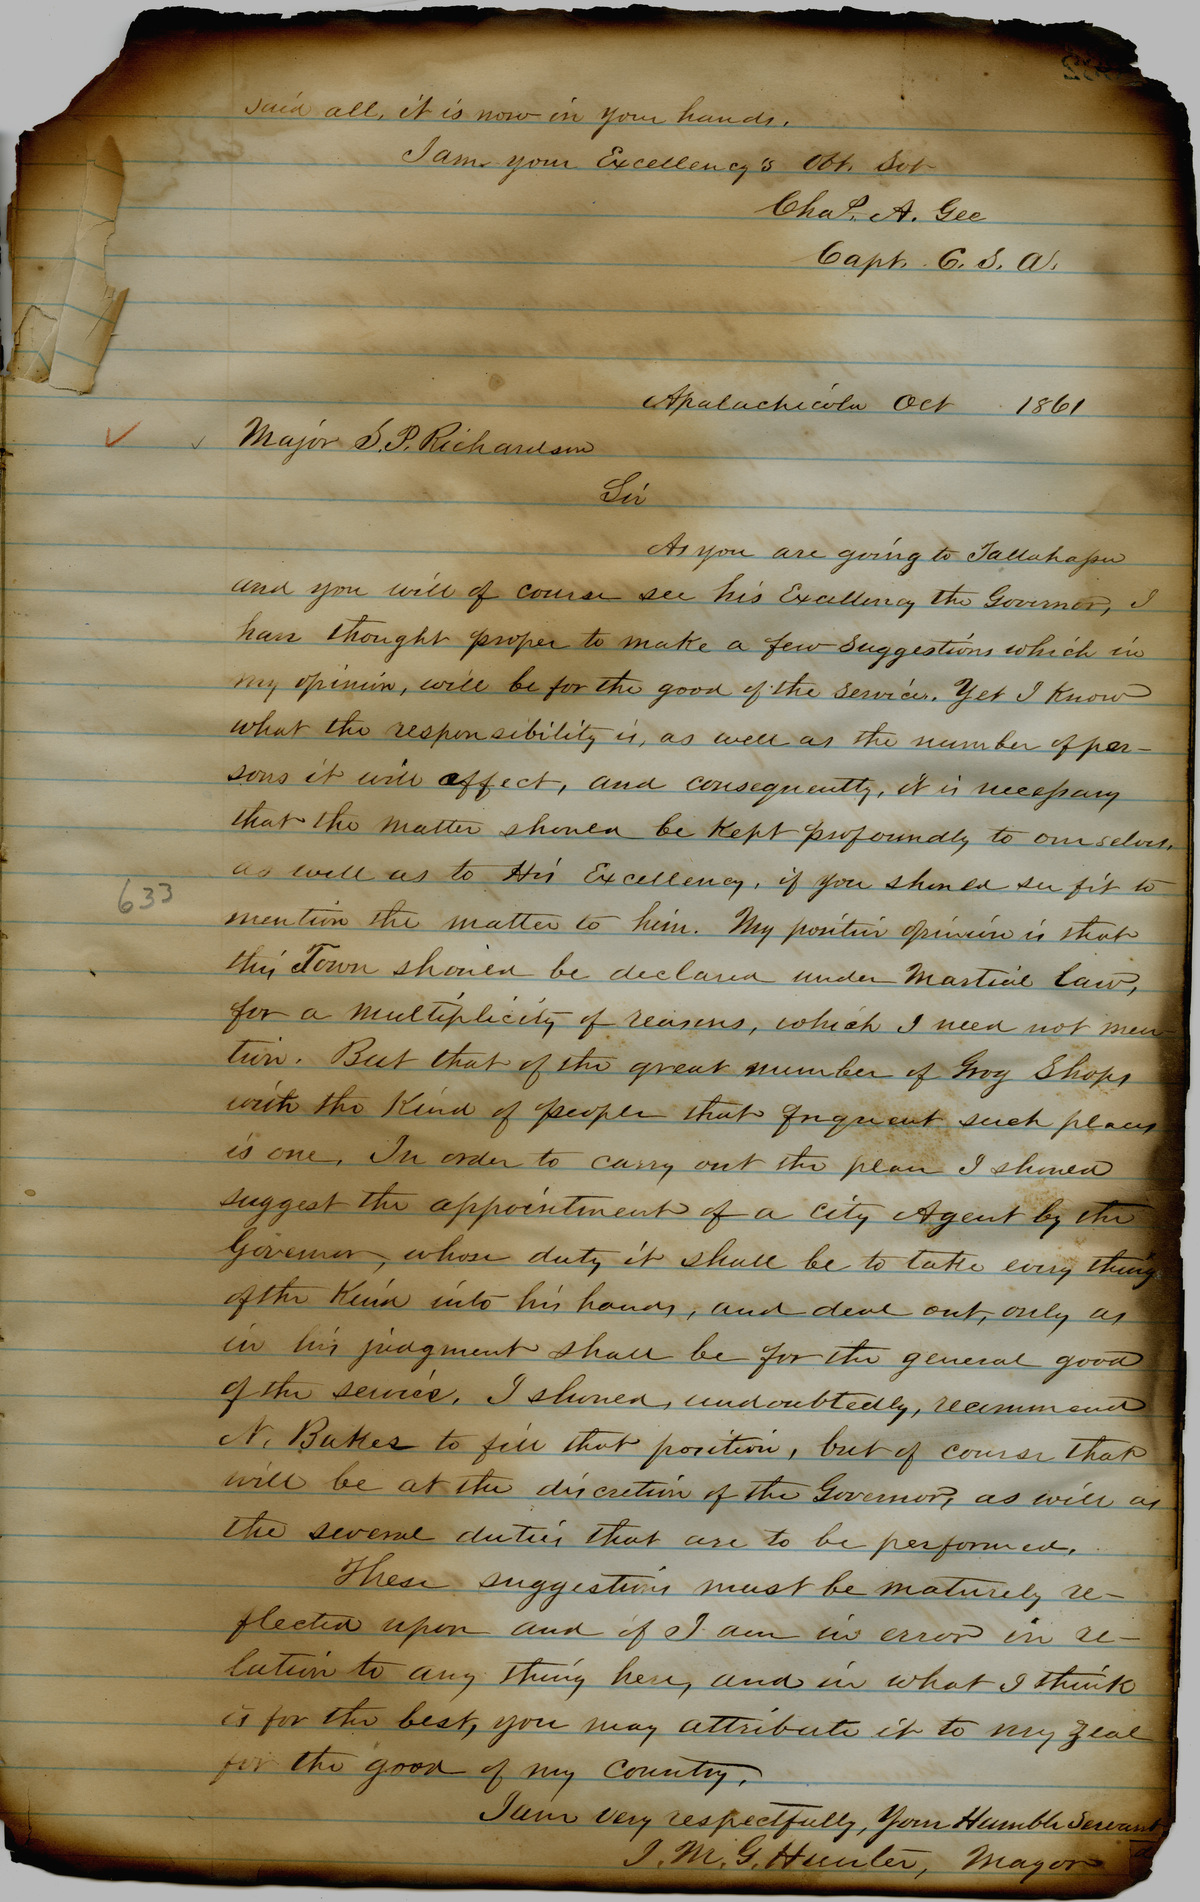 said all, it is now in your hands.
I am your Excellency's Obt. Svt
Chas. A. Gee
Capt. C. S. A.
Apalachicola Oct 1861
Major S. P. Richardson
Sir
As you are going to Tallahassee
and you will of course see his Excellency the Governor, I
have thought proper to make a few suggestions which in
my opinion, will be for the good of the service. Yet I know
what the responsibility is, as well as the number of per-
sons it will effect, and consequently, it is necessary
that the matter should be kept profoundly to ourselves,
as well as to His Excellency, if you should see fit to
mention the matter to him. My positive opinion is that
633
this Town should be declared under Martial law,
for a multiplicity of reasons, which I need not men
tion. But that of the great number of Grog Shops
with the kind of people that frequent such places
is one. In order to carry out the plan I should
suggest the appointment of a City Agent by the
Governor, whose duty it shall be to take every thing
of the kind into his hands, and deal out, only as
in his judgment shall be for the general good
of the service. I should, undoubtedly, recommend
N. Baker to fill that position, but of course that
will be at the discretion of the Governor, as will as
the several duties that are to be performed.
These suggestions must be maturely re-
flected upon and if I am in error in re-
lation to any thing here, and in what I think
is for the best, you may attribute it to my zeal
for the good of my Country.
I am very respectfully, Your Humble Servant
J. M. G. Hunter, Mayor